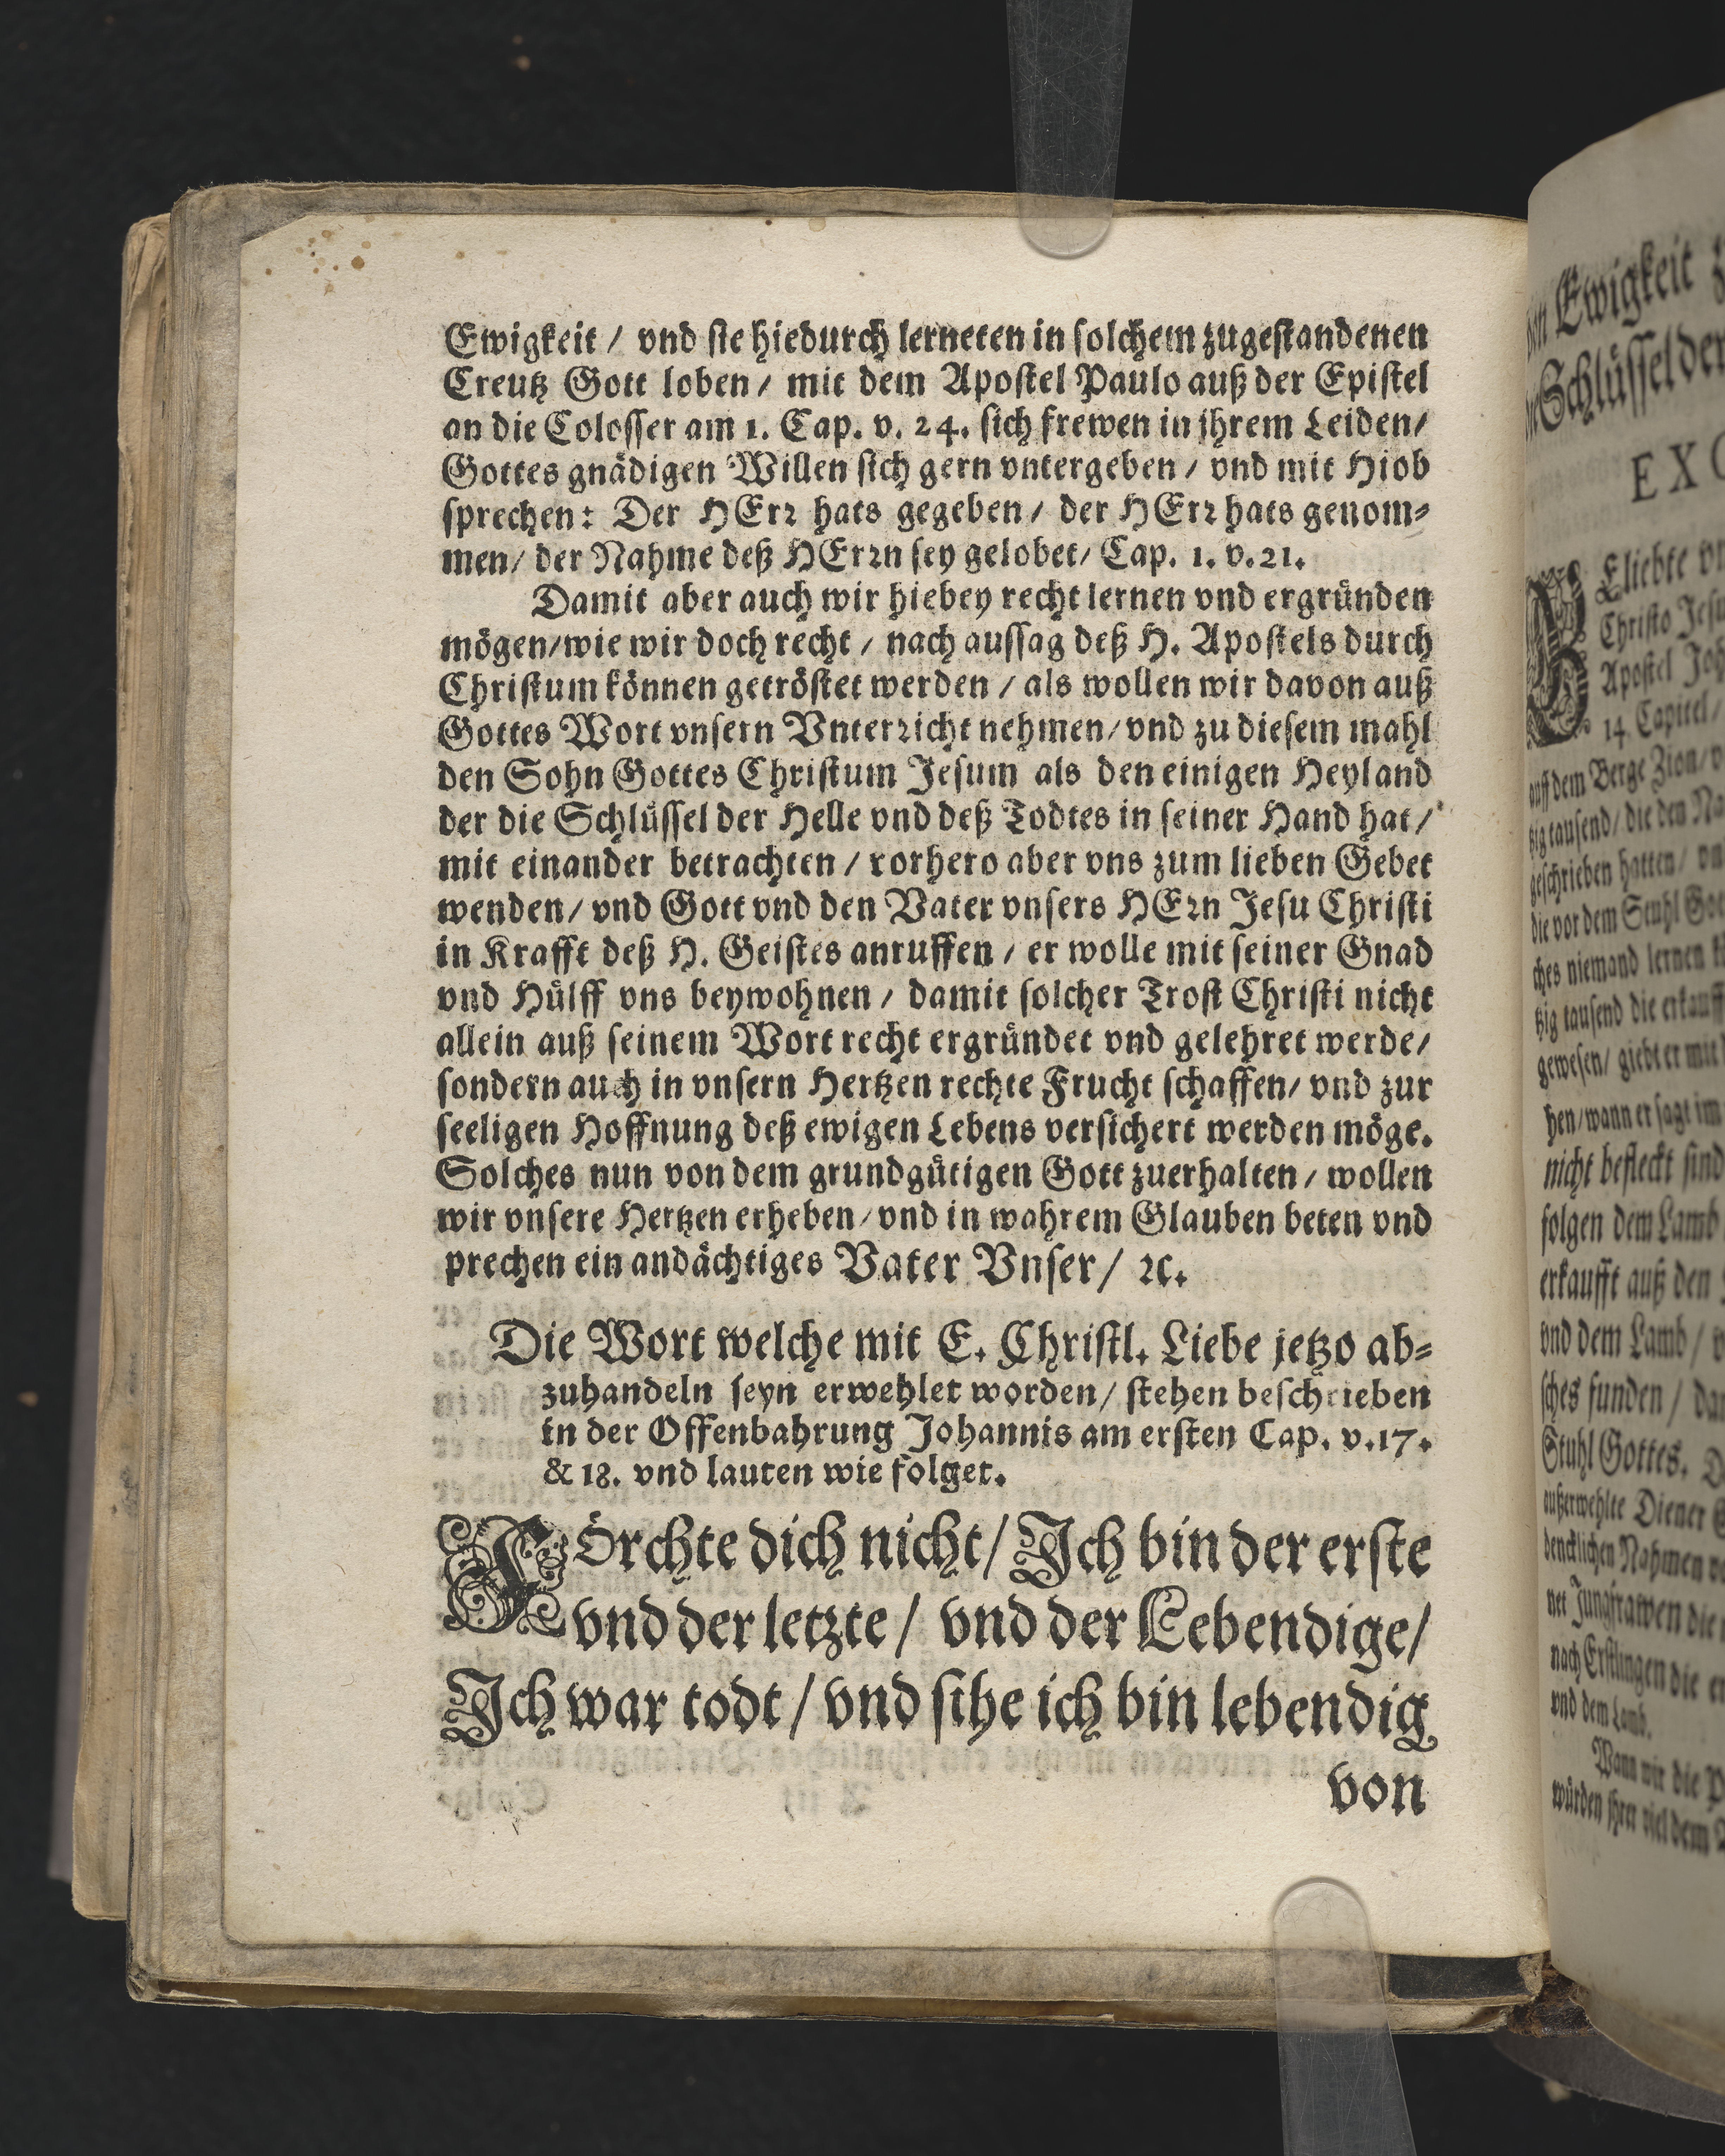 Ewigkeit / vnd sie hiedurch lerneten in solchem zugestandenen
Creutz Gott loben / mit dem Apostel Paulo auß der Epistel
an die Colosser am 1. Cap. v. 24. sich frewen in jhrem Leiden /
Gottes gnädigen Willen sich gern vntergeben / vnd mit Hiob
sprechen: Der HErr hats gegeben / der HErr hats genom⸗
men / der Nahme deß HErrn sey gelobet / Cap. 1. v. 21.
Damit aber auch wir hiebey recht lernen vnd ergründen
mögen / wie wir doch recht / nach aussag deß H. Apostels durch
Christum können getröstet werden / als wollen wir davon auß
Gottes Wort vnsern Vnterricht nehmen / vnd zu diesem mahl
den Sohn Gottes Christum Jesum als den einigen Heyland
der die Schlüssel der Helle vnd deß Todtes in seiner Hand hat /
mit einander betrachten / vorhero aber vns zum lieben Gebet
wenden / vnd Gott vnd den Vater vnsers HErn Jesu Christi
in Krafft deß H. Geistes anruffen / er wolle mit seiner Gnad
vnd Hülff vns beywohnen / damit solcher Trost Christi nicht
allein auß seinem Wort recht ergründet vnd gelehret werde /
sondern auch in vnsern Hertzen rechte Frucht schaffen / vnd zur
seeligen Hoffnung deß ewigen Lebens versichert werden möge.
Solches nun von dem grundgütigen Gott zuerhalten / wollen
wir vnsere Hertzen erheben / vnd in wahrem Glauben beten vnd
prechen ein andächtiges Vater Vnser / ꝛc.
Die Wort welche mit E. Christl. Liebe jetzo ab⸗
zuhandeln seyn erwehlet worden / stehen beschrieben
in der Offenbahrung Johannis am ersten Cap. v. 17.
& 18. vnd lauten wie folget.
FÖrchte dich nicht / Ich bin der erste
vnd der letzte / vnd der Lebendige /
Ich war todt / vnd sihe ich bin lebendig
von
Ewigkeit
Schlüssel der
EXO
Eliebte
Christo Jesu
Apostel
14. Capitel /
auff dem Berge Zion /
tzig tausend / die den
geschrieben hatten /
die vor dem Stuhl
ches niemand lernen
tzig tausend die
gewesen / giebt er mit
hen / wann er sagt im
nicht befleckt sind
folgen dem Lamb
erkaufft auß den
vnd dem Lamb /
sches funden /
Stuhl Gottes.
außerwehlte Diener
dencklichen Nahmen
net Jungfrawen die
nach Erstlingen die
vnd dem Lamb.
Wann wir die
würden jhrer viel dem